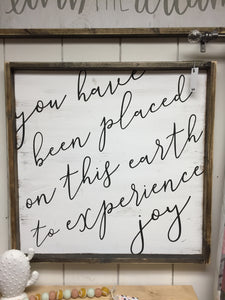 the dream
you have
been placed
on this earth
to experience
joy